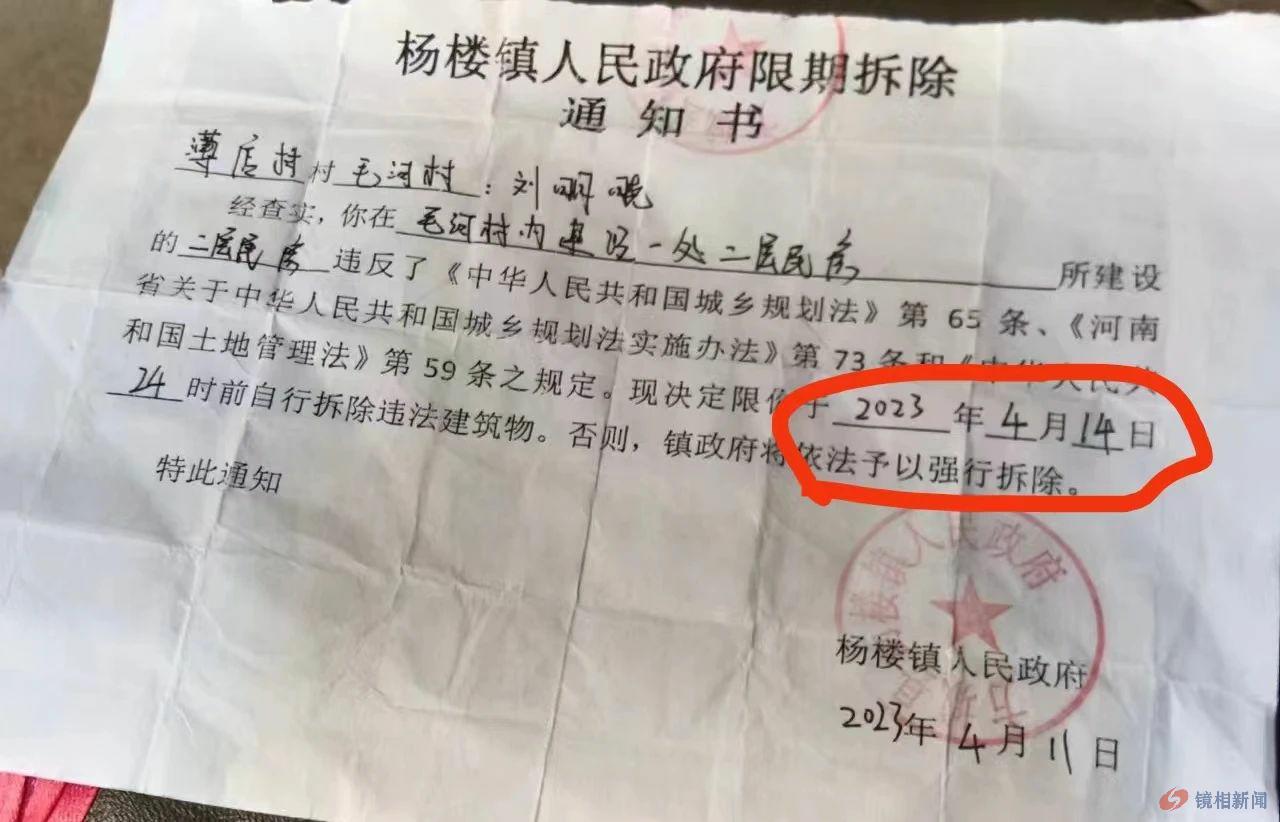 杨楼镇人民政府限期拆除
通知书
薄店村村毛河村：刘
经查实，你在毛河村内建设一处二层民房所建设
的二层民房违反了《中华人民共和国城乡规划法》第 65 条、《河南
省关于中华人民共和国城乡规划法实施办法》第 73 条和《中华人民共
和国土地管理法》第 59 条之规定。现决定限你于 2023 年 4 月 14 日
24 时前自行拆除违法建筑物。否则，镇政府将依法予以强行拆除。
特此通知
楼镇人民政府
杨楼镇人民政府
2023年 4 月 11 日
镜相新闻